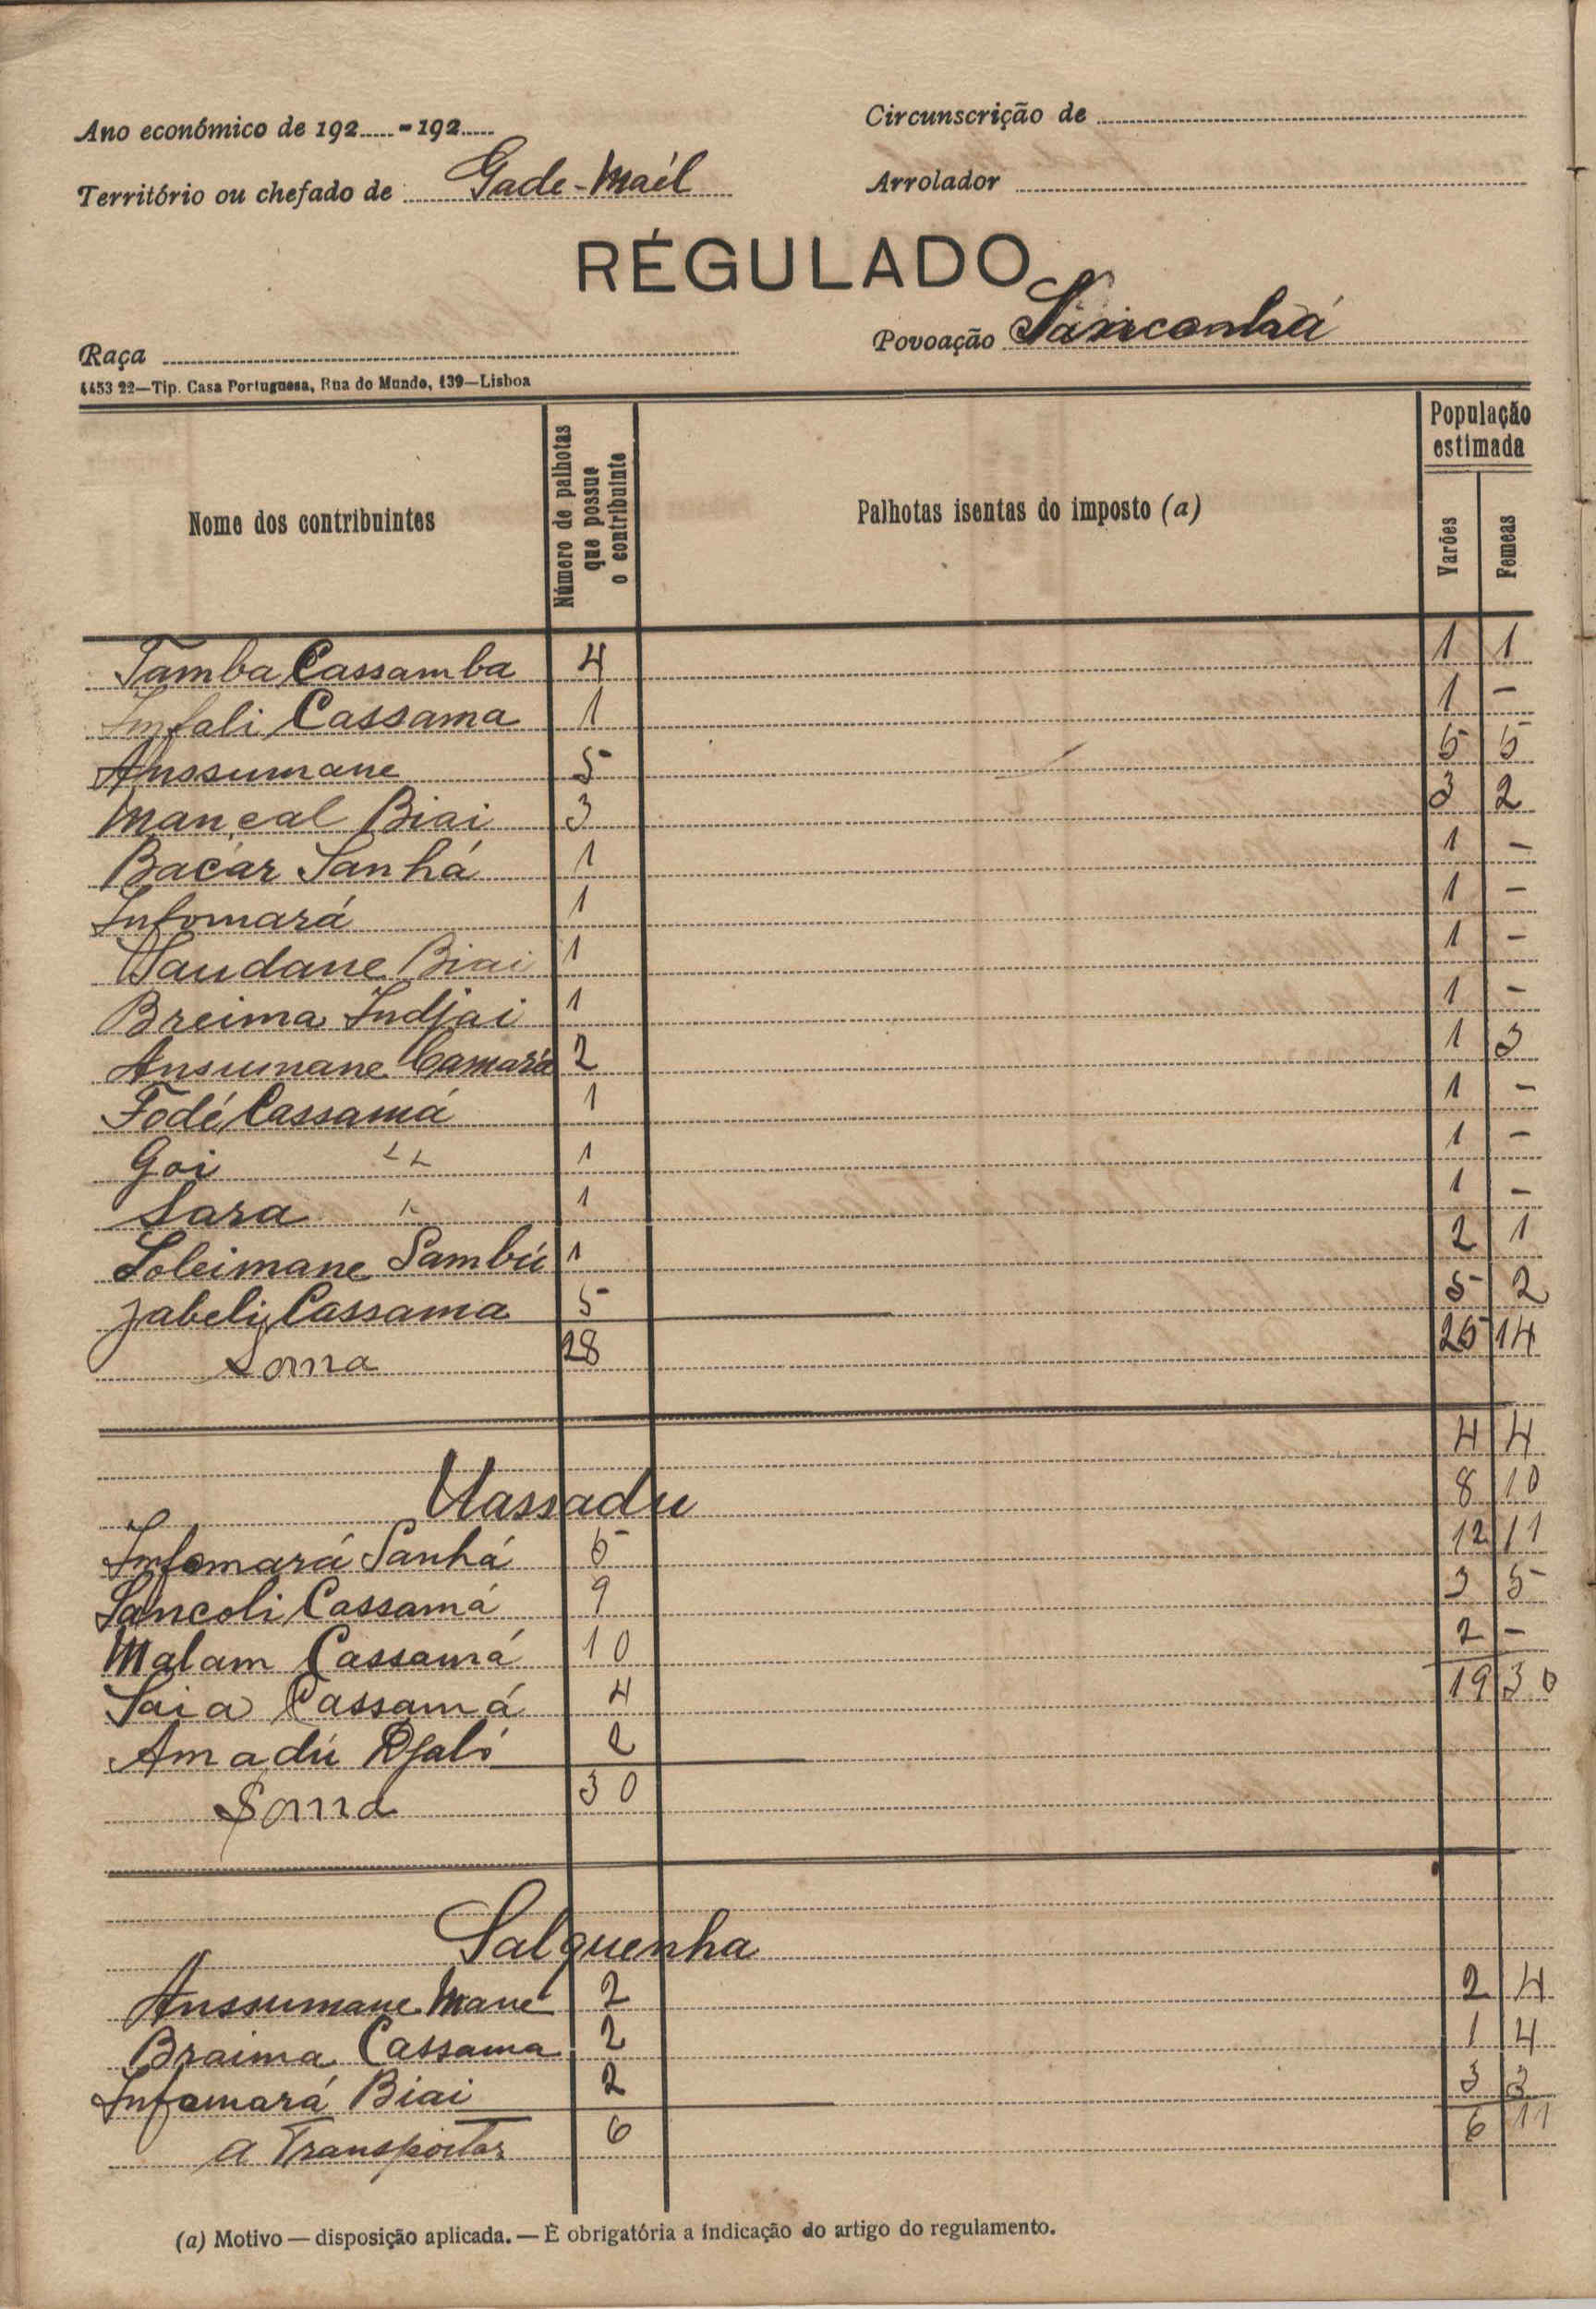 Ano económico de 192.....-192.....
Circunscrição de
Território ou chefado de Gade-Maél
Arrolador
RÉGULADO
Raça
Povoação Sanconhá
4453 22—Tip. Casa Portuguesa, Rua do Mundo, 139—Lisboa
Nome dos contribuintes
Número de palhotas que possue o contribuinte
Palhotas isentas do imposto (a)
População estimada
Varões
Femeas
Tamba Cassamba 4 1 1
Infali Cassama 1 1 -
Anssumane 5 5 5
Mançal Biai 3 3 2
Bacár Sanhá 1 1 -
Infomará 1 1 -
Saudane Biai 1 1 -
Breima Indjai 1 1 -
Ansumane Camará 2 1 3
Fodé Cassamá 1 1 -
Goi " 1 1 -
Sara " 1 1 -
Soleimane Sambú 1 2 1
Jabeli Cassama 5 5 2
Soma 28 25 14
4 4
Uassadu 8 10
Infomará Sanhá 5 12 11
Sancoli Cassamá 9 3 5
Malam Cassamá 10 2 -
Saia Cassamá 4 19 30
Amadú Djaló 2
Soma 30
Salquenha
Anssumane Mané 2 2 4
Braima Cassama 2 1 4
Infamará Biai 2 3 3
A Transportar 6 6 11
(a) Motivo — disposição aplicada. — É obrigatória a indicação do artigo do regulamento.